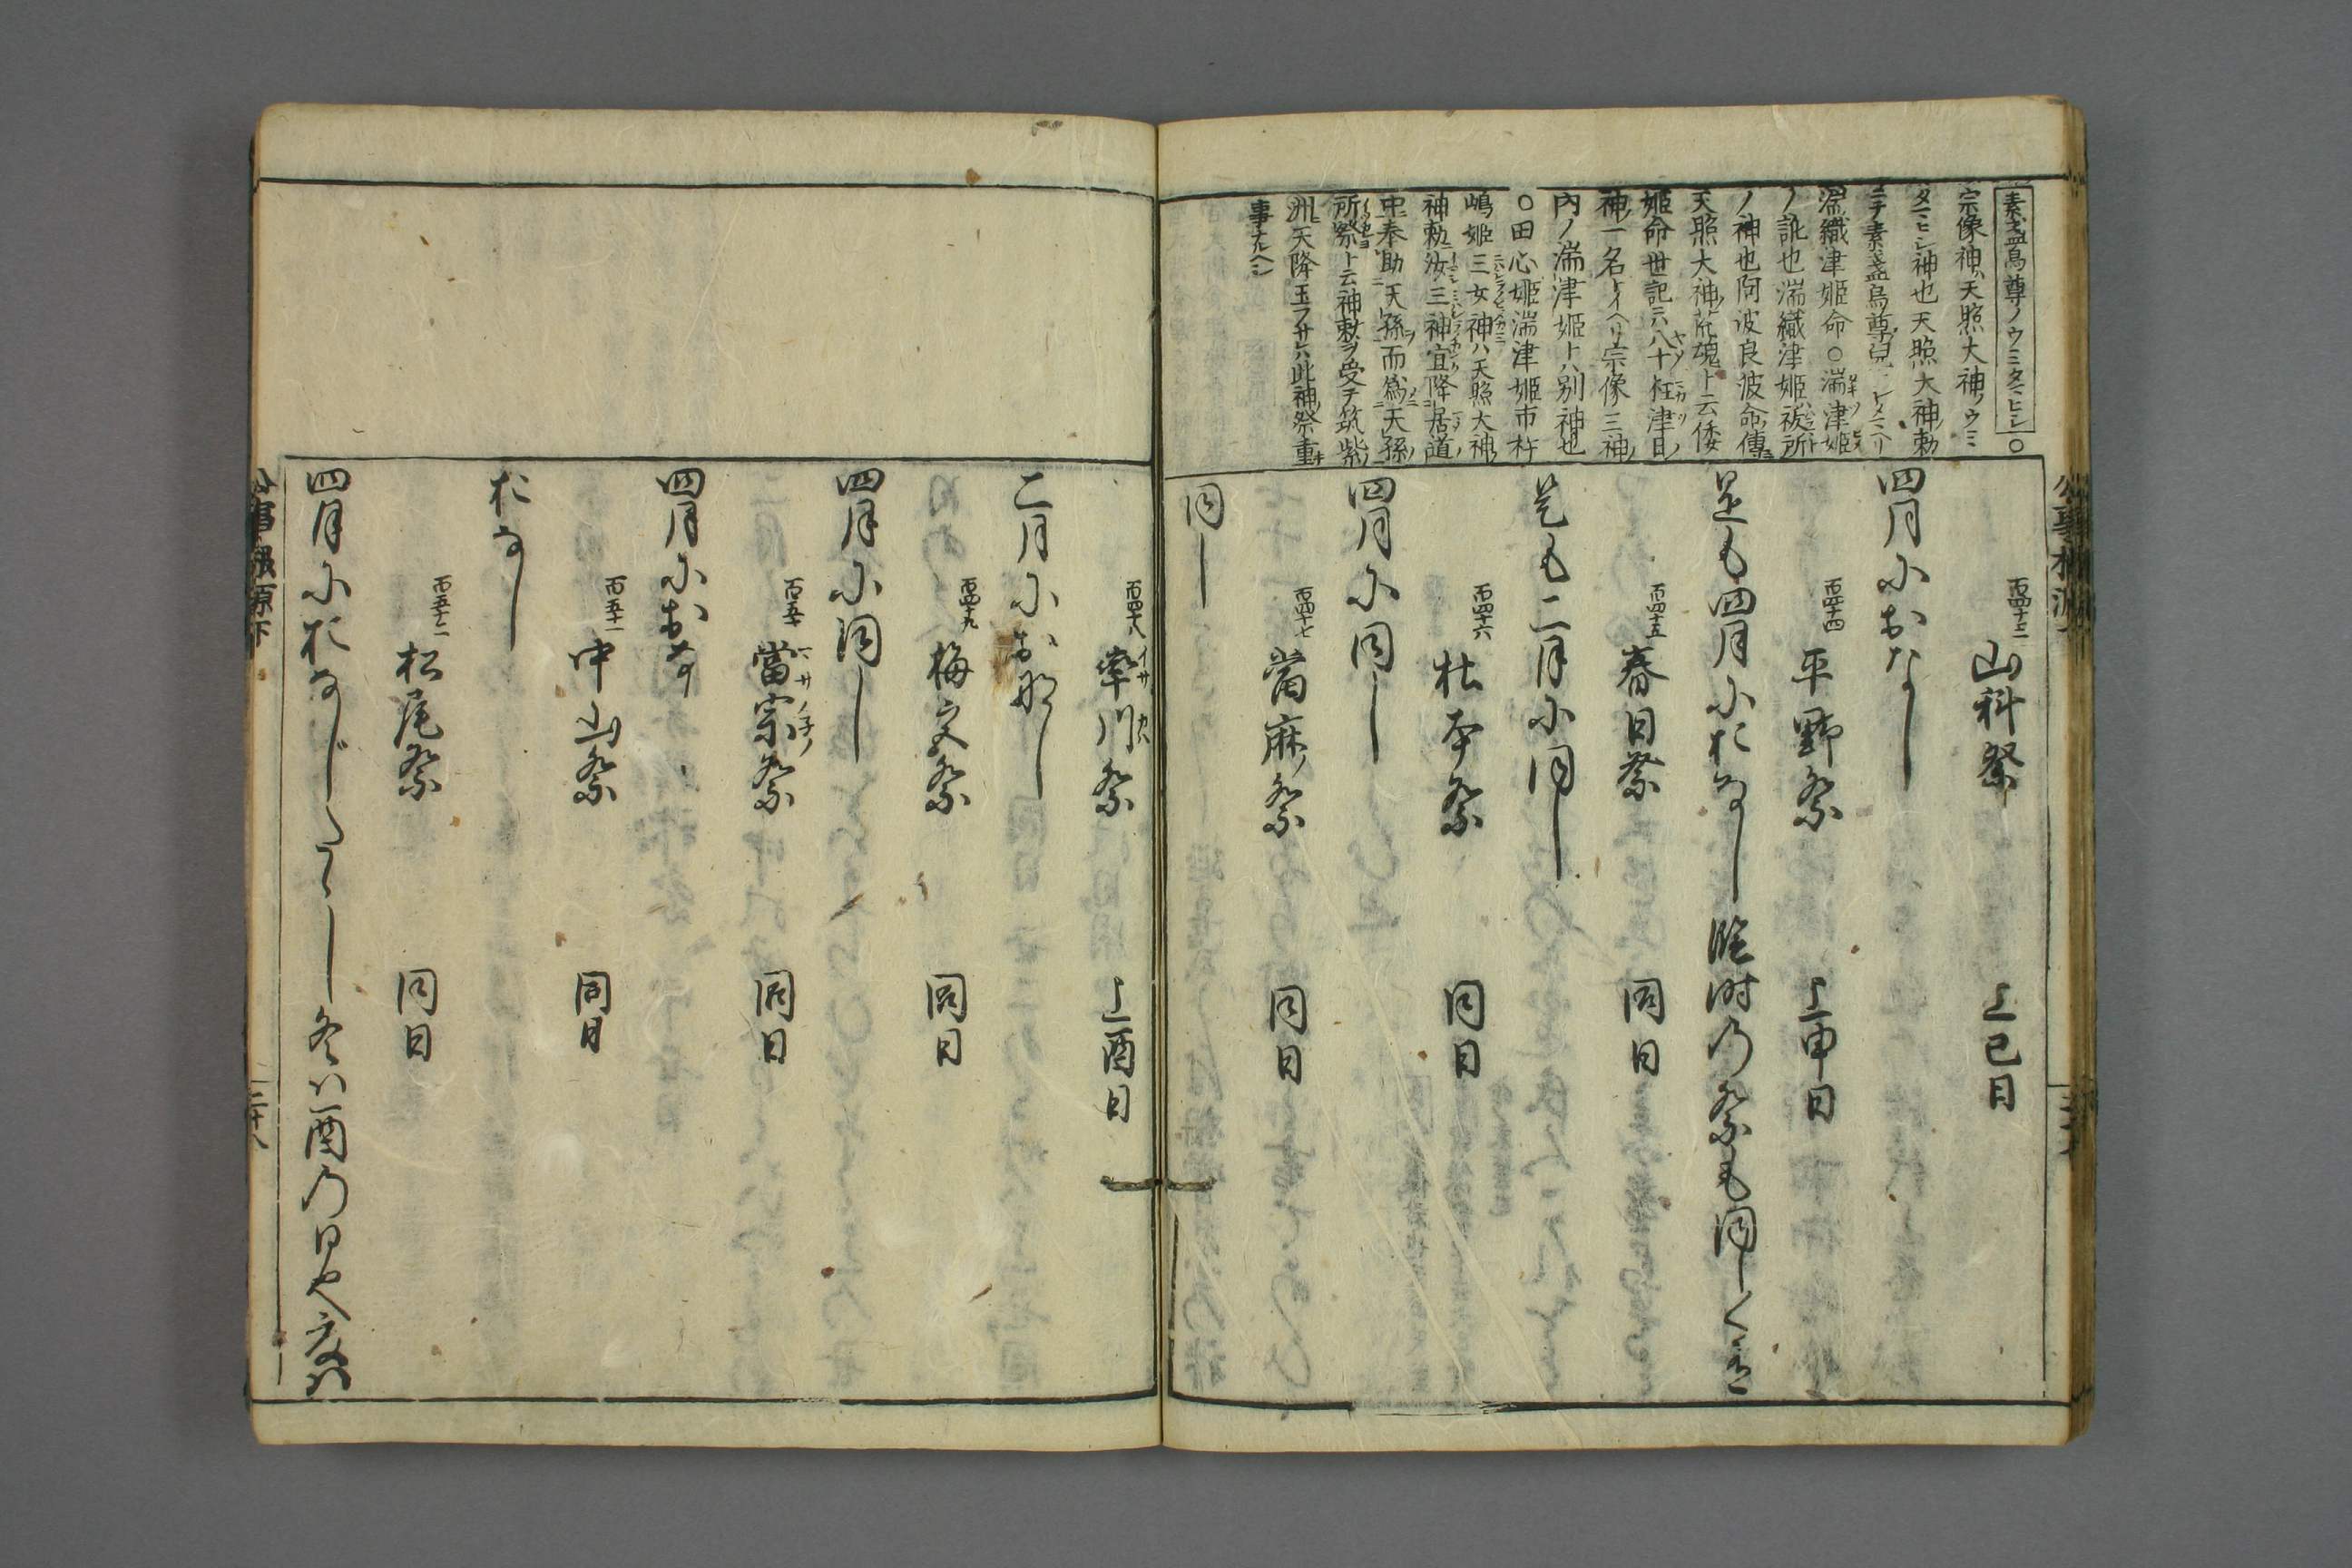 素盞烏尊ノウミタマヒシ〇
宗像神ハ天照大神ノウミ
タマヒシ神也天照大神ノ勅
ニテ素盞烏尊ノ兒
湍織津姫命〇湍津姫
ノ訛也湍織津姫ハ祓所
ノ神也阿波良波命傳ニ
天照大神ノ荒魂ト云倭
姫命世記云八十枉津日ノ
神一名ナリトイヘリ宗像三神ノ
内ノ湍津姫トハ別神也
〇田心姫湍津姫市杵
嶋姫三女神ハ天照大神ノ
神勅ニ汝三神宜降居道
中奉助天孫而為天孫ノ
所祭ト云神勅ヲ受テ筑紫
洲ニ天降玉フサレハ此神ノ祭重キ
事ナルヘシ
百四十三 山科祭 上巳日
四月におなし
百四十四 平野祭 上申日
是も四月におなし臨時の祭も同しく
百四十五 春日祭 同日
是も二月に同し
百四十六 杜本祭 同日
四月に同し
百四十七 當麻祭 同日
同し
百四十八 率川祭 上酉日
二月におなし
百四十九 梅宮祭 同日
四月に同し
百五十 當宗祭 同日
四月におなし
百五十一 中山祭 同日
おなし
百五十二 松尾祭 同日
四月におなじたゝし冬は酉の日也夏は
公事根源下
二十八